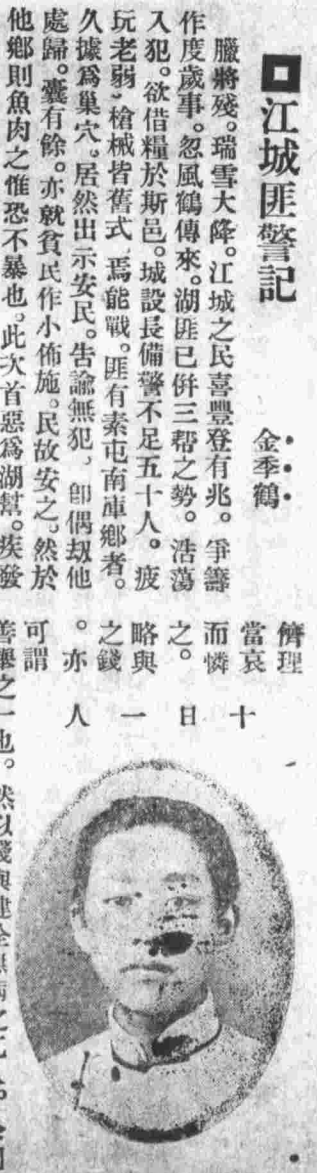 江城匪警記
金季鶴
臘將殘。瑞雪大降。江城之民喜豐登有兆。爭籌
作度歲事。忽風鶴傳來。湖匪已併三帮之勢。浩蕩
入犯。欲借糧於斯邑。城設長備警不足五十人。疲
玩老弱、槍械皆舊式、焉能戰。匪有素屯南庫鄉者。
久據爲巢穴。居然出示安民。告諭無犯、卽偶刼他
處歸。囊有餘。亦就貧民作小佈施。民故安之。然於
他鄉則魚肉之惟恐不暴也。此次首惡爲湖幫。疾發
十日一人
儕理
當哀
而憐
之。
略與
之錢
。亦
可謂
善舉之一也。然以錢與建全無病之